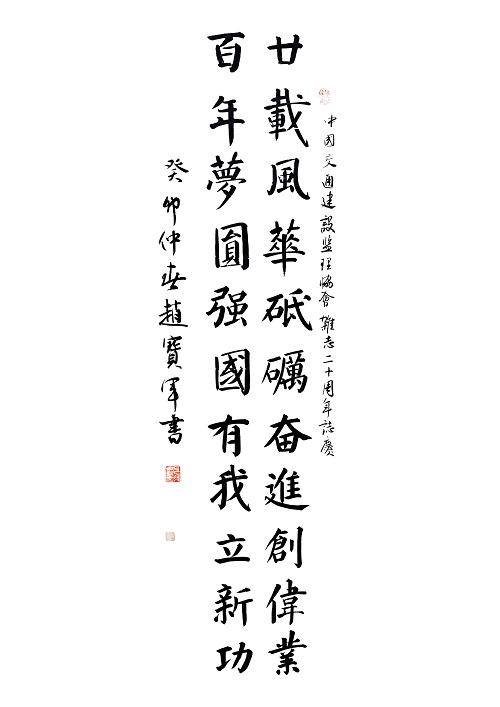 中國交通建設监理協會雜志二十周年誌慶
廿載風華砥礪奋進創偉業
百年夢圓强國有我立新功
癸卯仲春趙寶军書